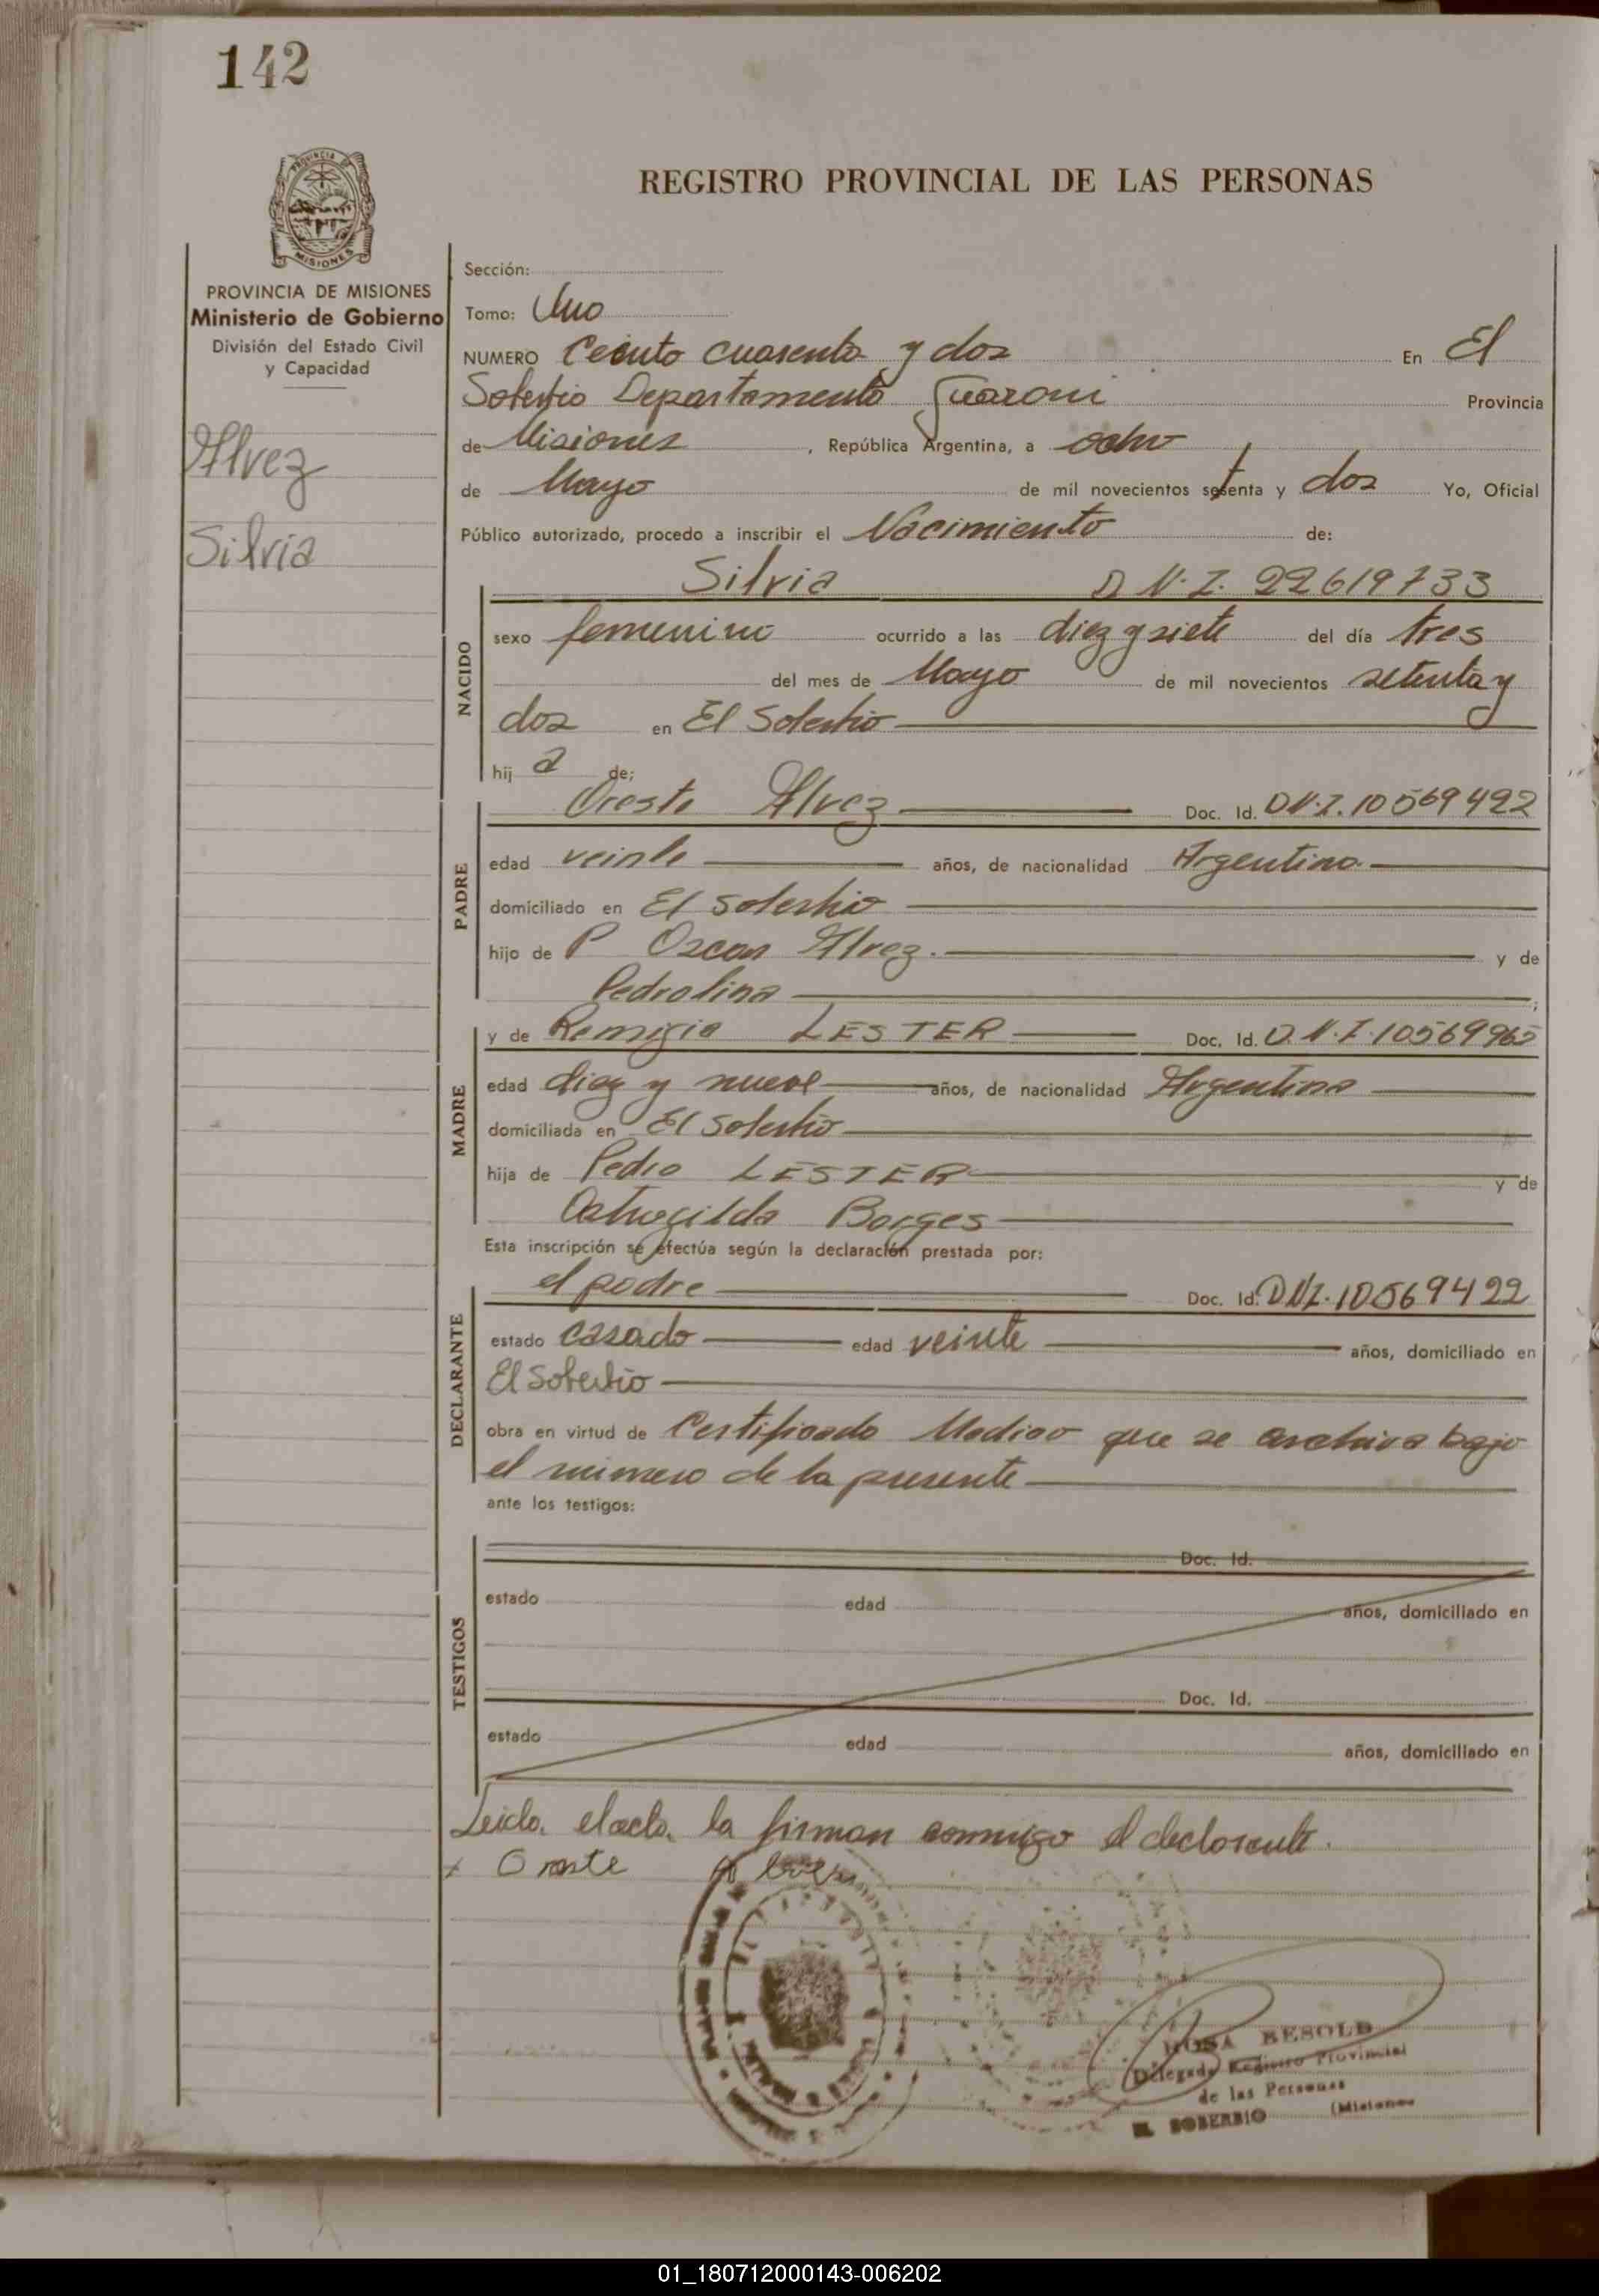 142
PROVINCIA
MISIONES
REGISTRO PROVINCIAL DE LAS PERSONAS
PROVINCIA DE MISIONES
Ministerio de Gobierno
División del Estado Civil
y Capacidad
Alvez
Silvia
Sección:
Tomo: Uno
NUMERO Ceinto cuarenta y dos En El
Soberbio Departamento Guarani Provincia
de Misiones, República Argentina, a ocho
de Mayo de mil novecientos setenta y dos Yo, Oficial
Público autorizado, procedo a inscribir el Nacimiento de:
Silvia D.N.I. 22619733
NACIDO
sexo femenino ocurrido a las diez y siete del día tres
del mes de Mayo de mil novecientos setenta y
dos en El Soberbio
hij a de;
Oreste Alvez Doc. Id. D.N.I. 10569422
PADRE
edad veinte años, de nacionalidad Argentina
domiciliado en El Soberbio
hijo de P Oscar Alvez. y de
Pedrolina ;
y de Remigia LESTER Doc. Id. D.N.I 10569965
MADRE
edad diez y nueve años, de nacionalidad Argentina
domiciliada en El Soberbio
hija de Pedro LESTER y de
Borges
Esta inscripción se efectúa según la declaración prestada por:
el padre Doc. Id. DNI. 10569422
DECLARANTE
estado casado edad veinte años, domiciliado en
El Soberbio
obra en virtud de Certificado Medico que se archiva bajo
el numero de la presente
ante los testigos:
Doc. Id.
TESTIGOS
estado edad años, domiciliado en
Doc. Id.
estado edad años, domiciliado en
Leida el acta, la firman conmigo el declarante.
x Oreste Alvez
ROSA BESOLD
Delegada Registro Provincial
de las Personas
EL SOBERBIO (Misiones
01_180712000143-006202